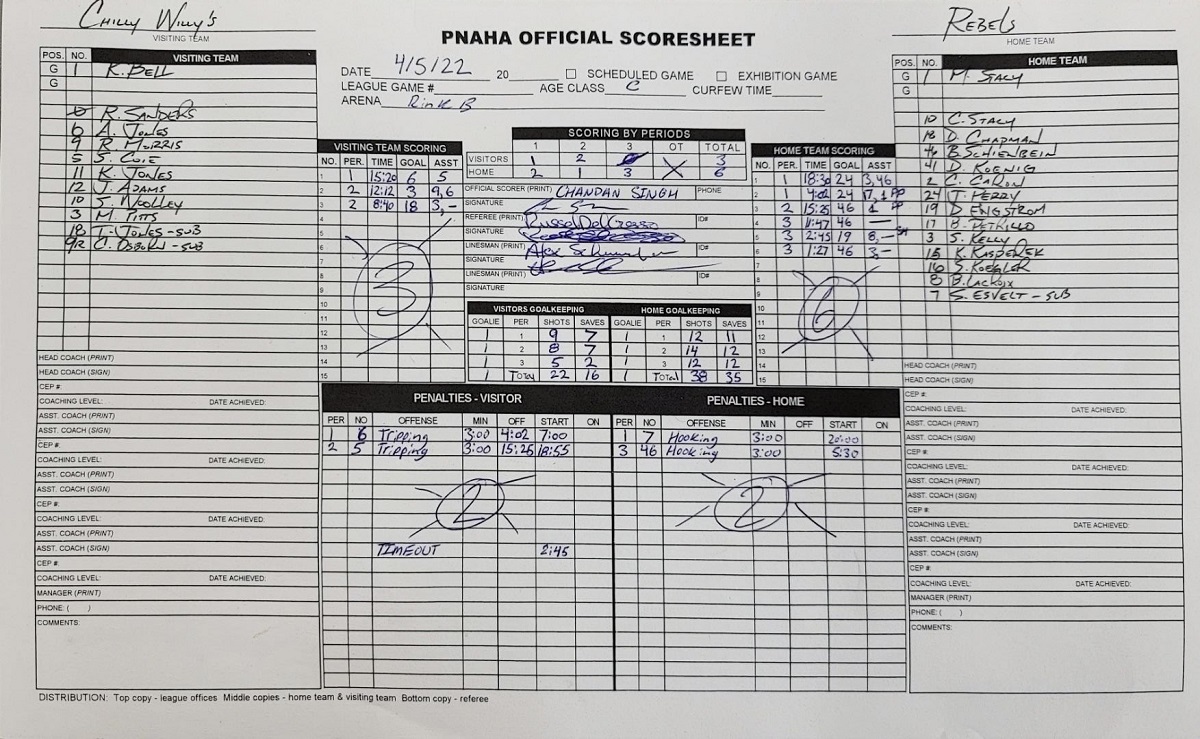 Chilly Willy's
VISITING TEAM
PNAHA OFFICIAL SCORESHEET
Rebels
HOME TEAM
DATE 4/5/22 20 ☐ SCHEDULED GAME ☐ EXHIBITION GAME
LEAGUE GAME # AGE CLASS C CURFEW TIME
ARENA Rink B
POS. NO. VISITING TEAM
G 1 K. BELL
G
R. SANDERS
6 A. JONES
9 R. MORRIS
5 S. COIE
11 K. JONES
12 J. ADAMS
10 J. WOOLLEY
3 M. PITTS
18 T. JONES - SUB
C. OSBORN - SUB
HEAD COACH (PRINT)
HEAD COACH (SIGN)
CEP #
COACHING LEVEL: DATE ACHIEVED:
ASST. COACH (PRINT)
ASST. COACH (SIGN)
CEP #:
COACHING LEVEL: DATE ACHIEVED:
ASST. COACH (PRINT)
ASST. COACH (SIGN)
CEP #:
COACHING LEVEL: DATE ACHIEVED:
ASST. COACH (PRINT)
ASST. COACH (SIGN)
CEP #:
COACHING LEVEL: DATE ACHIEVED:
MANAGER (PRINT)
PHONE: ( )
COMMENTS:
VISITING TEAM SCORING
NO. PER. TIME GOAL ASST
1 1 15:20 6 5
2 2 12:12 3 9,6
3 2 8:40 18 3,-
4
5
6
7
8
9
10
11
12
13
14
15
3
SCORING BY PERIODS
1 2 3 OT TOTAL
VISITORS 1 2 0 X 3
HOME 2 1 3 X 6
OFFICIAL SCORER (PRINT) CHANDAN SINGH PHONE
SIGNATURE
REFEREE (PRINT) Russo DelGrosso ID#
SIGNATURE
LINESMAN (PRINT) Alex ID#
SIGNATURE
LINESMAN (PRINT) ID#
SIGNATURE
VISITORS GOALKEEPING HOME GOALKEEPING
GOALIE PER SHOTS SAVES GOALIE PER SHOTS SAVES
1 1 9 7 1 1 12 11
1 2 8 7 1 2 14 12
1 3 5 2 1 3 12 12
1 Total 22 16 1 Total 38 35
HOME TEAM SCORING
NO. PER. TIME GOAL ASST
1 1 18:30 24 3,46
2 1 4:02 24 17,1 PP
3 2 15:25 46 1 PP
4 3 11:47 46 —
5 3 2:45 19 8,- SH
6 3 1:27 46 3,-
7
8
9
10
11
12
13
14
15
6
PENALTIES - VISITOR PENALTIES - HOME
PER NO OFFENSE MIN OFF START ON PER NO OFFENSE MIN OFF START ON
1 6 Tripping 3:00 4:02 7:00 1 7 Hooking 3:00 20:00
2 5 Tripping 3:00 15:25 18:55 3 46 Hooking 3:00 5:30
2 2
TIMEOUT 2:45
POS. NO. HOME TEAM
G 1 M. STACY
G
10 C. STACY
18 D. CHAPMAN
46 B. SCHIENBEIN
41 D. KOENIG
2 C. CARON
24 T. PERRY
19 D ENGSTROM
17 B. PETRILLO
3 S. KELLY
15 K. KASPEREK
16 S. KOEGLER
8 B. LACROIX
7 S. ESVELT - SUB
HEAD COACH (PRINT)
HEAD COACH (SIGN)
CEP #:
COACHING LEVEL: DATE ACHIEVED:
ASST. COACH (PRINT)
ASST. COACH (SIGN)
CEP #:
COACHING LEVEL: DATE ACHIEVED:
ASST. COACH (PRINT)
ASST. COACH (SIGN)
CEP #:
COACHING LEVEL: DATE ACHIEVED:
ASST. COACH (PRINT)
ASST. COACH (SIGN)
CEP #:
COACHING LEVEL: DATE ACHIEVED:
MANAGER (PRINT)
PHONE: ( )
COMMENTS:
DISTRIBUTION: Top copy - league offices Middle copies - home team & visiting team Bottom copy - referee